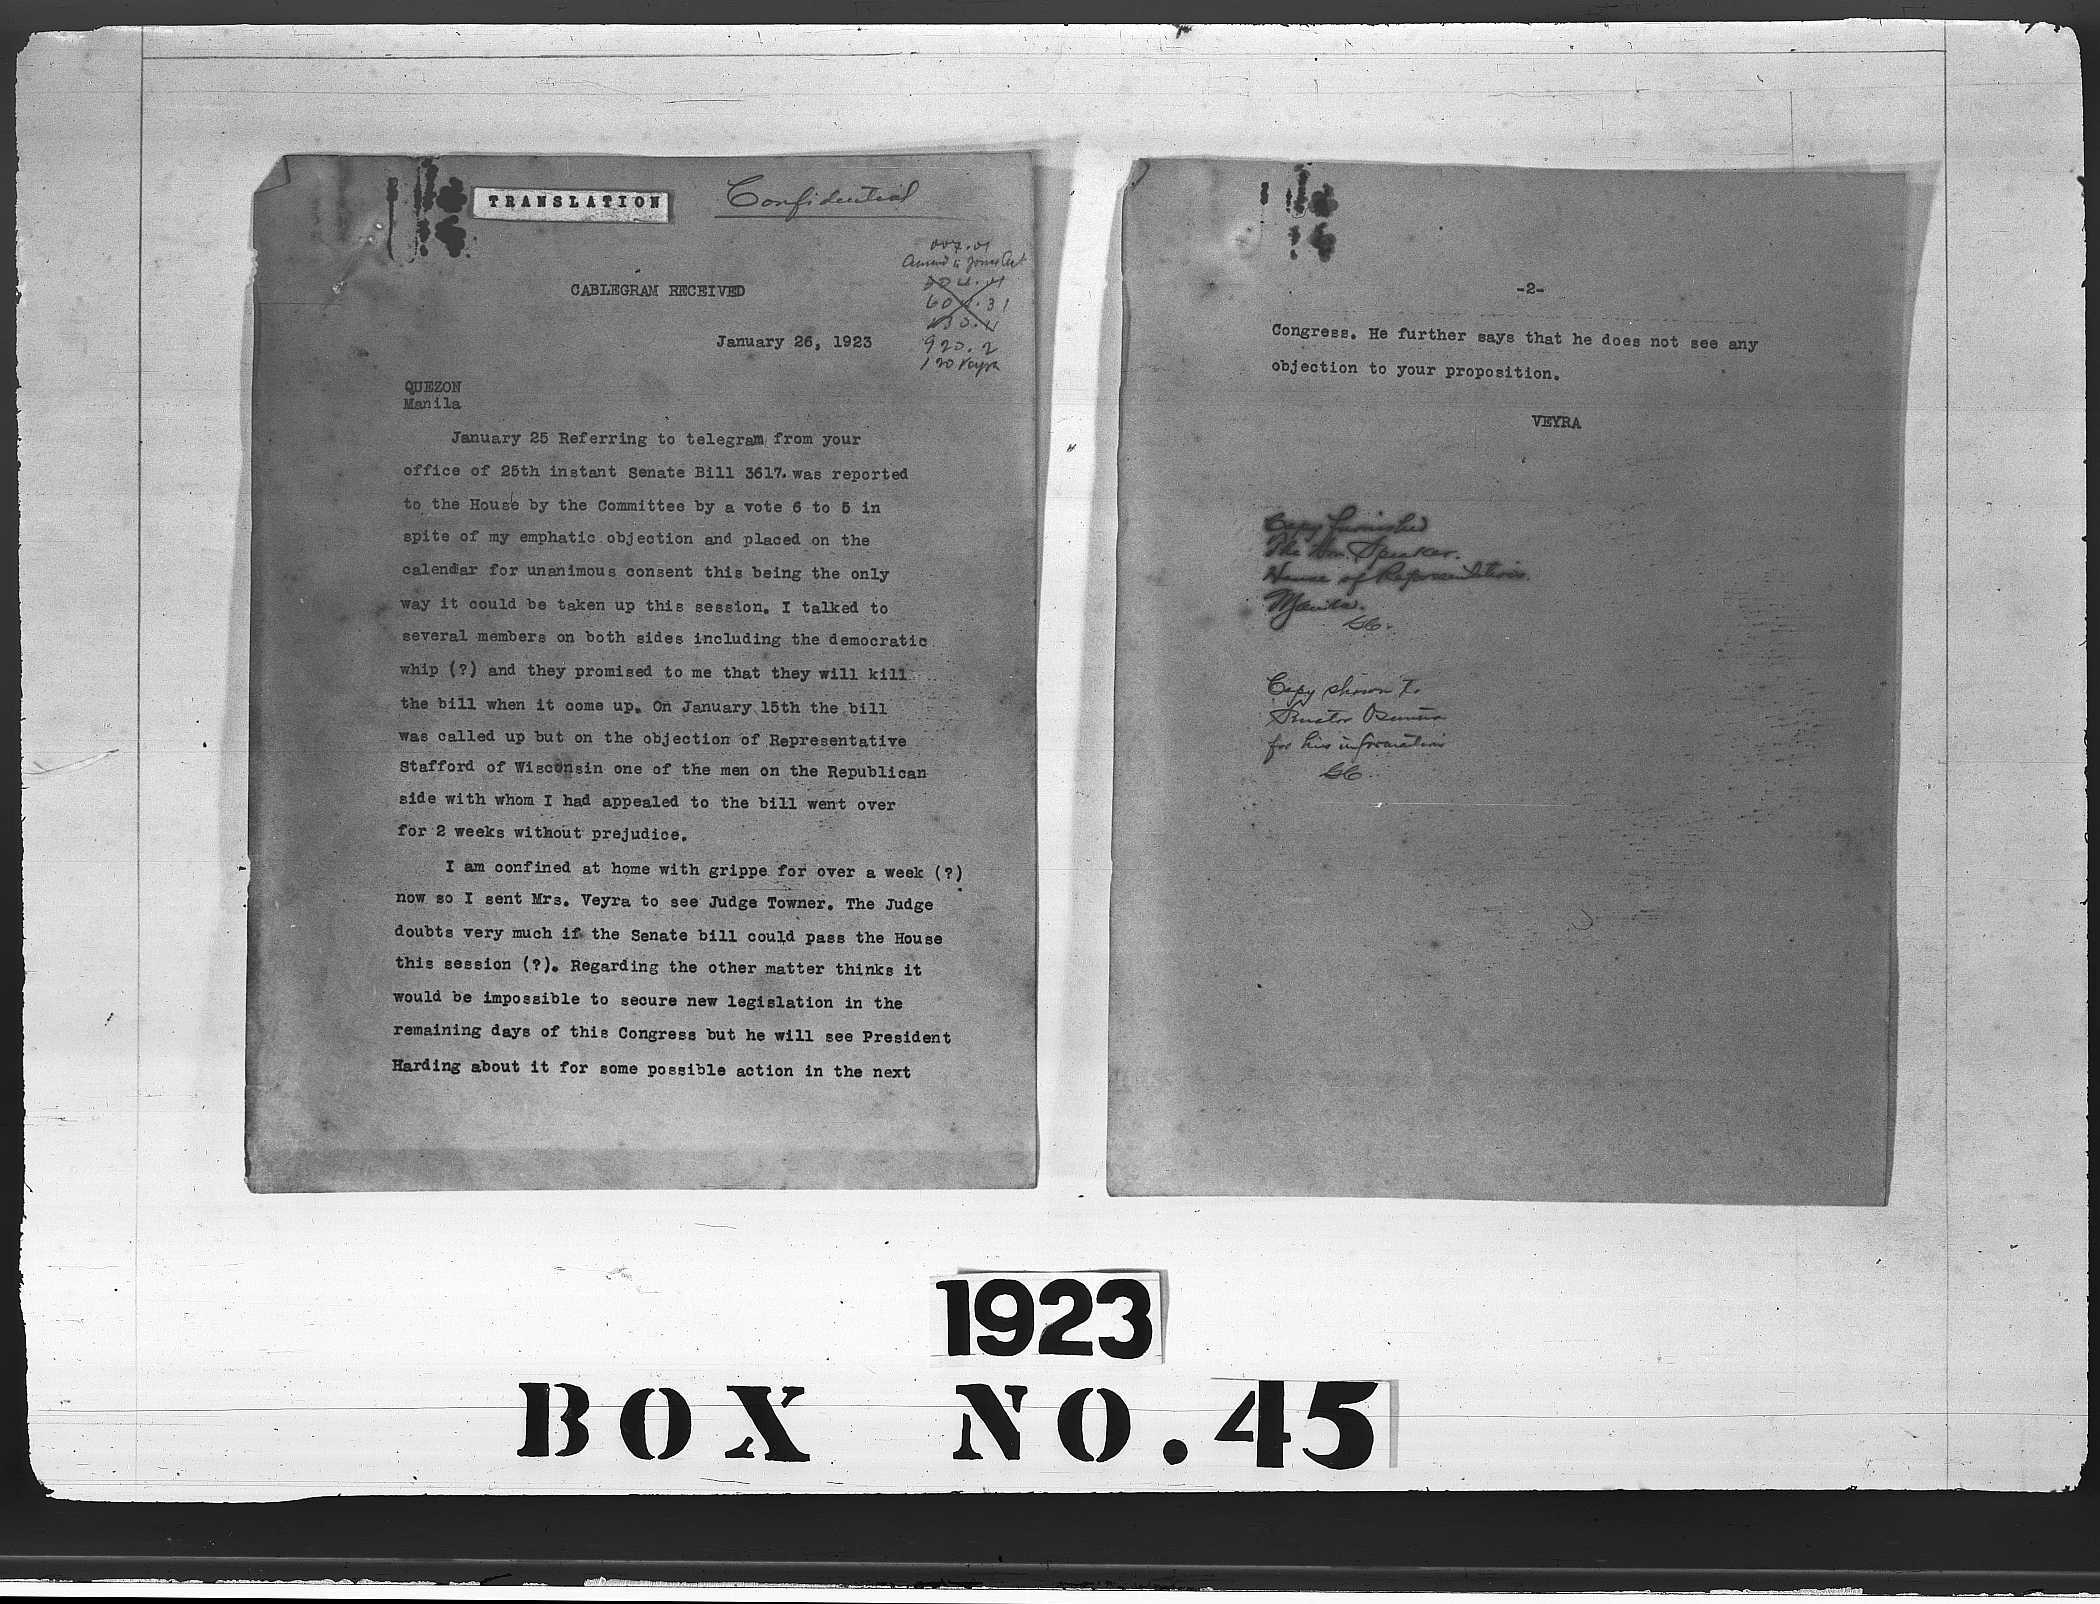 TRANSLATION
Confidential
007.01
Amend to Jones Act
604.31
920.2
120 Veyra
CABLEGRAM RECEIVED
January 26, 1923
QUEZON
Manila
January 25 Referring to telegram from your
office of 25th instant Senate Bill 3617. was reported
to the House by the Committee by a vote 6 to 5 in
spite of my emphatic objection and placed on the
calendar for unanimous consent this being the only
way it could be taken up this session. I talked to
several members on both sides including the democratic
whip (?) and they promised to me that they will kill
the bill when it come up. On January 15th the bill
was called up but on the objection of Representative
Stafford of Wisconsin one of the men on the Republican
side with whom I had appealed to the bill went over
for 2 weeks without prejudice.
I am confined at home with grippe for over a week (?)
now so I sent Mrs. Veyra to see Judge Towner. The Judge
doubts very much if the Senate bill could pass the House
this session (?). Regarding the other matter thinks it
would be impossible to secure new legislation in the
remaining days of this Congress but he will see President
Harding about it for some possible action in the next
-2-
Congress. He further says that he does not see any
objection to your proposition.
VEYRA
Copy furnished
The Hon. Speaker.
House of Representatives.
Manila.
Copy shown to
Senator Osmeña
for his information
1923
BOX NO.45